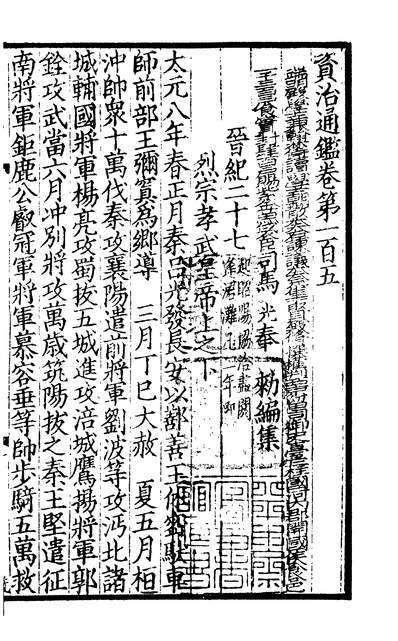 資治通鑑卷第一百五
端明殿學士兼翰林侍讀學士朝散大夫右諫議大夫
司馬 光奉 勑編集
晉紀二十七
起昭陽協洽盡閼
逢涒灘凡
烈宗孝武皇帝上之下
太元八年春正月秦呂光發長安以鄯善王休密馱車
師前部王彌窴為鄉導 三月丁巳大赦 夏五月桓
沖帥衆十萬伐秦攻襄陽遣前將軍劉波等攻沔北諸
城輔國將軍楊亮攻蜀拔五城進攻涪城鷹揚將軍郭
銓攻武當六月沖別將攻萬歲筑陽拔之秦王堅遣征
南將軍鉅鹿公叡冠軍將軍慕容垂等帥步騎五萬救